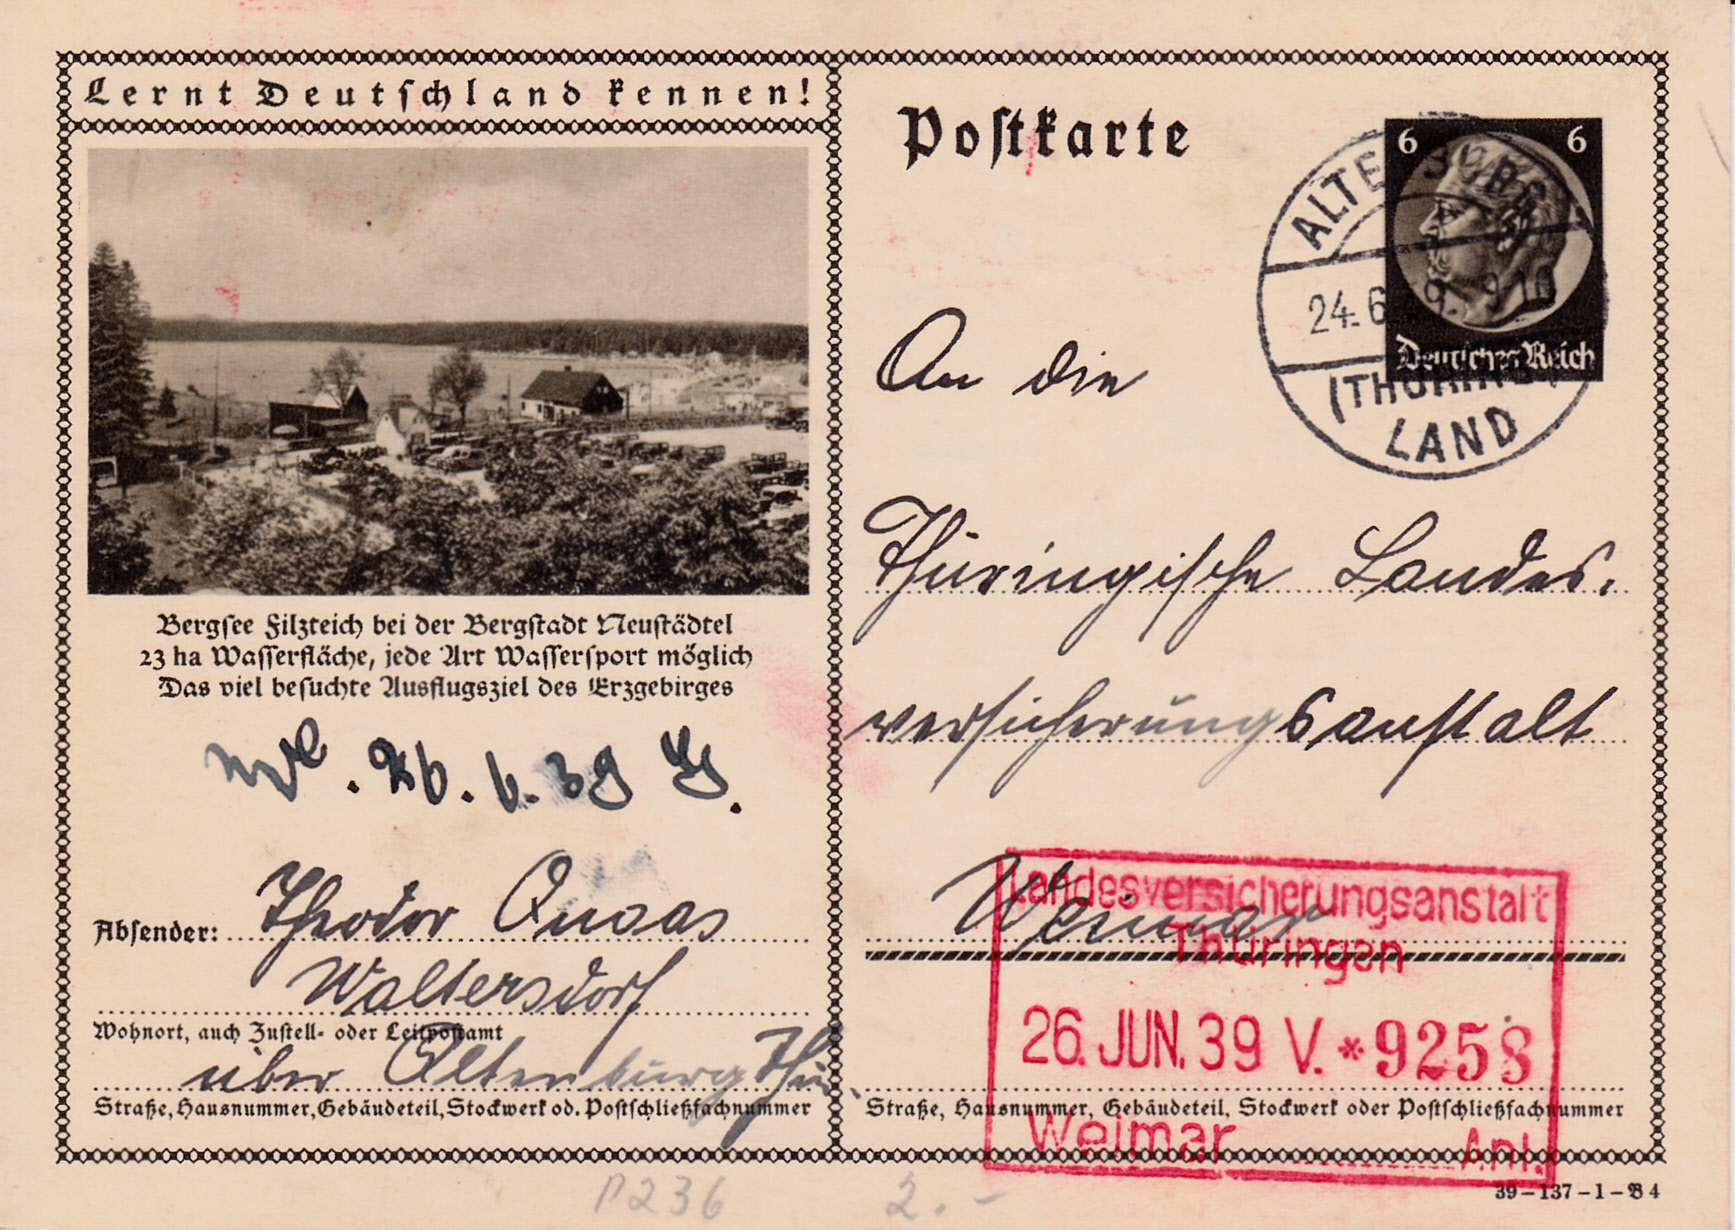 Lernt Deutschland kennen!
Bergsee Filzteich bei der Bergstadt Neustädtel
23 ha Wasserfläche, jede Art Wassersport möglich
Das viel besuchte Ausflugsziel des Erzgebirges
26. 6. 39
Absender: Theodor Quaas
Waltersdorf
Wohnort, auch Zustell- oder Leitpostamt
über Altenburg Thür.
Straße, Hausnummer, Gebäudeteil, Stockwerk od. Postschließfachnummer
Postkarte
6 6
Deutsches Reich
ALTENBURG
24.6.39.-9 10
(THÜRING)
LAND
An die
Thüringische Landes-
versicherungsanstalt
Weimar
Landesversicherungsanstalt
Thüringen
26. JUN. 39 V. * 9258
Straße, Hausnummer, Gebäudeteil, Stockwerk oder Postschließfachnummer
Weimar Anl.
39-137-1-B 4
P236 2.-